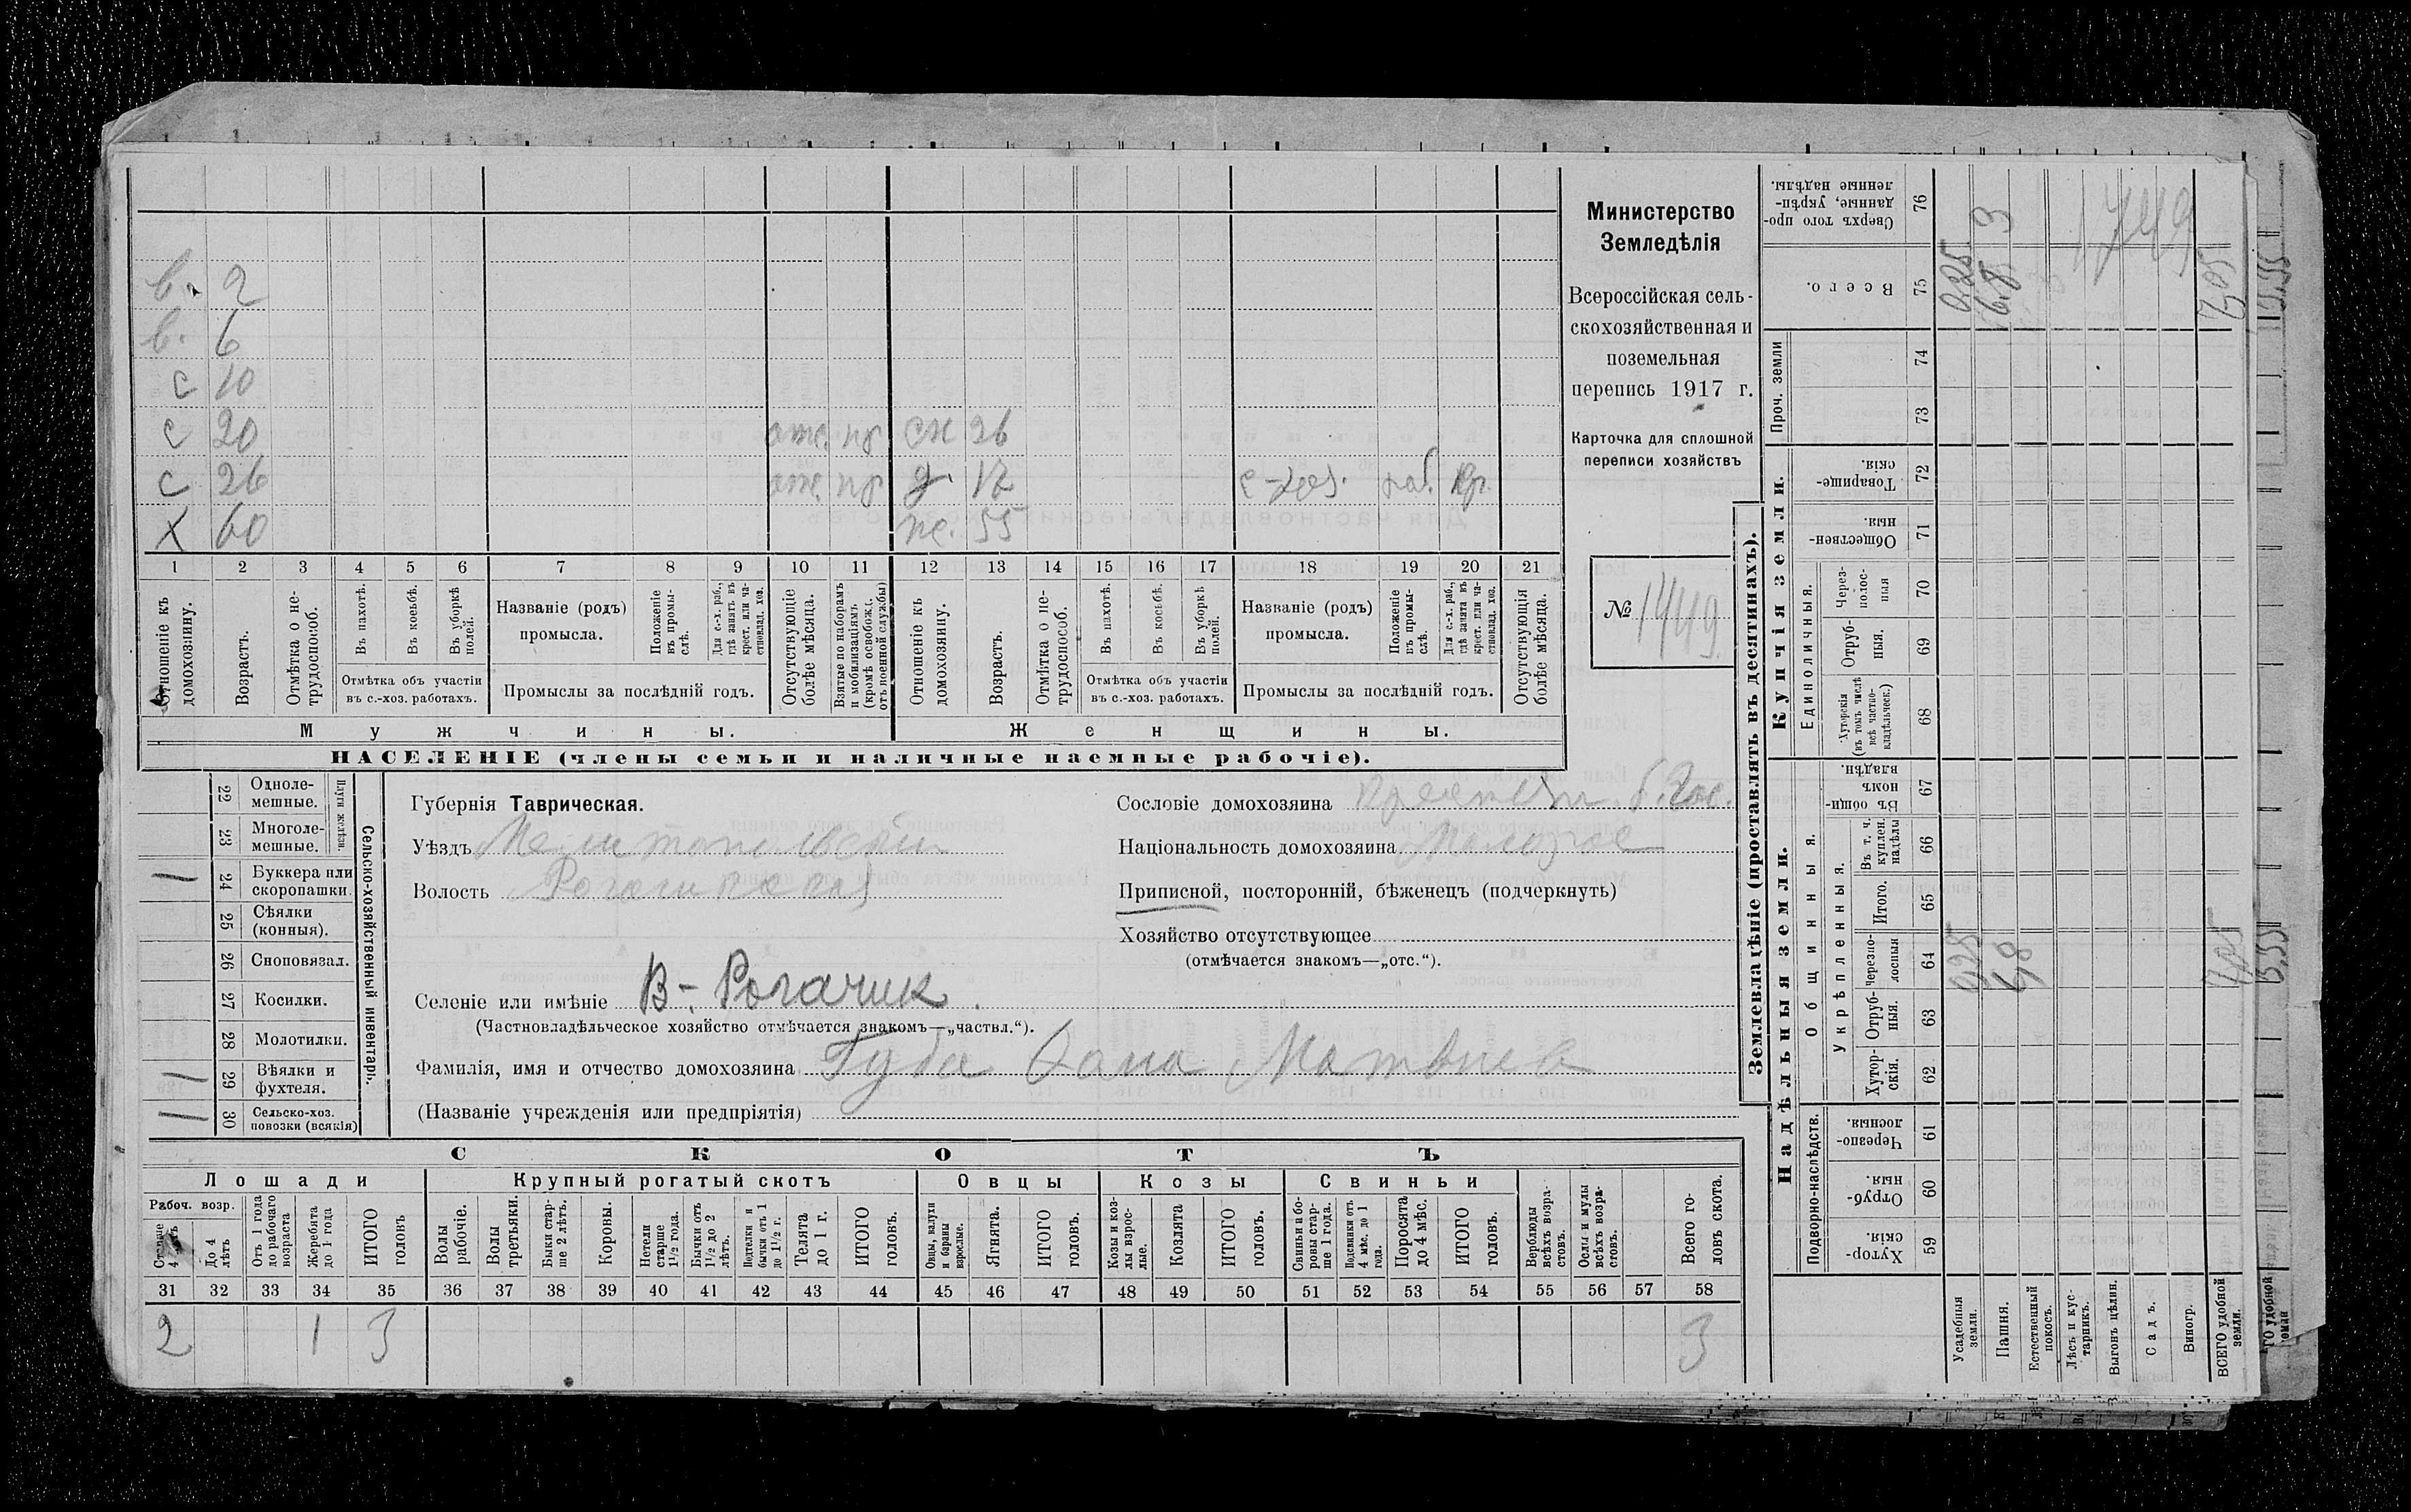 в. 2
в. 6
с 10
с 20 отс. нб сн 26
с 26 отс. нб д. 17 раб. кр.
х 60 же. 55
1 2 3 4 5 6 7 8 9 10 11 12 13 14 15 16 17 18 19 20 21
Отношеніе къ домохозяину.
Возрастъ.
Отмѣтка о нетрудоспособ.
Въ пахотѣ.
Въ косьбѣ.
Въ уборкѣ полей.
Отмѣтка объ участіи въ с.-хоз. работахъ.
Названіе (родъ) промысла.
Положеніе въ промыслѣ.
Для с.-х. раб., гдѣ занятъ въ крест. или частновлад. хоз.
Промыслы за послѣдній годъ.
Отсутствующіе болѣе мѣсяца.
Взятые по наборамъ и мобилизаціямъ (кромѣ освобожд. отъ военной службы)
Отношеніе къ домохозяину.
Возрастъ.
Отмѣтка о нетрудоспособ.
Въ пахотѣ.
Въ косьбѣ.
Въ уборкѣ полей.
Отмѣтка объ участіи въ с.-хоз. работахъ.
Названіе (родъ) промысла.
Положеніе въ промыслѣ.
Для с.-х. раб., гдѣ занята въ крест. или частновлад. хоз.
Промыслы за послѣдній годъ.
Отсутствующія болѣе мѣсяца.
Мужчины. Женщины.
НАСЕЛЕНІЕ (члены семьи и наличные наемные рабочіе).
Министерство
Земледѣлія
Всероссійская сель-
скохозяйственная и
поземельная
перепись 1917 г.
Карточка для сплошной
переписи хозяйствъ
№ 1449
Плуги желѣзн.
Сельско-хозяйственный инвентарь.
22 Однолемешные.
23 Многолемешные.
1 24 Буккера или скоропашки.
25 Сѣялки (конныя).
26 Сноповязал.
27 Косилки.
28 Молотилки.
1 29 Вѣялки и фухтеля.
1 30 Сельско-хоз. повозки (всякія)
Губернія Таврическая.
Уѣздъ Мелитопольскій
Волость Рогачикская
Селеніе или имѣніе В-. Рогачик.
(Частновладѣльческое хозяйство отмѣчается знакомъ—„частвл.“).
Фамилія, имя и отчество домохозяина Губа Матвѣев
(Названіе учрежденія или предпріятія)
Сословіе домохозяина
Національность домохозяина Малорос
Приписной, посторонній, бѣженецъ (подчеркнуть)
Хозяйство отсутствующее
(отмѣчается знакомъ—„отс.“).
СКОТЪ
Лошади Крупный рогатый скотъ Овцы Козы Свиньи
Рабоч. возр.
Старше 4 лѣтъ
До 4 лѣтъ
Отъ 1 года до рабочаго возраста
Жеребята до 1 года
ИТОГО головъ
Волы рабочіе.
Волы третьяки.
Быки старше 2 лѣтъ.
Коровы.
Нетели старше 1½ года.
Бычки отъ 1½ до 2 лѣтъ.
Подтелки и бычки отъ 1 до 1½ г.
Телята до 1 г.
ИТОГО головъ.
Овцы, валухи и бараны взрослые.
Ягнята.
ИТОГО головъ.
Козы и козлы взрослые.
Козлята
ИТОГО головъ.
Свиньи и боровы старше 1 года.
Подсвинки отъ 4 мѣс. до 1 года.
Поросята до 4 мѣс.
ИТОГО головъ.
Верблюды всѣхъ возрастовъ.
Ослы и мулы всѣхъ возрастовъ.
Всего головъ скота.
31 32 33 34 35 36 37 38 39 40 41 42 43 44 45 46 47 48 49 50 51 52 53 54 55 56 57 58
2 1 3 3
Землевладѣніе (проставлять въ десятинахъ).
Надѣльныя земли. Купчія земли. Проч. земли
Подворно-наслѣдств. Общинныя. Укрѣпленныя. Единоличныя.
Хуторскія. 59
Отрубныя. 60
Черезполосныя. 61
Хуторскія. 62
Отрубныя. 63
Черезполосныя 64
Итого. 65
Въ т. ч. куплен. надѣлы 66
Въ общинномъ владѣн. 67
Хуторскія (въ томъ числѣ всѣ частновладѣльческ.) 68
Отрубныя. 69
Черезполосныя 70
Общественныя. 71
Товарищескія. 72
73
74
Всего. 75
Сверхъ того проданные, укрѣпленные надѣлы. 76
Усадебныя земли. 0,25 0,25
Пашня. 6,8 6,8 3
Естественный покосъ.
Лѣсъ и кустарникъ.
Выгонъ цѣлин.
Садъ.
Виногр.
ВСЕГО удобной земли. 7,05 7,05
1449